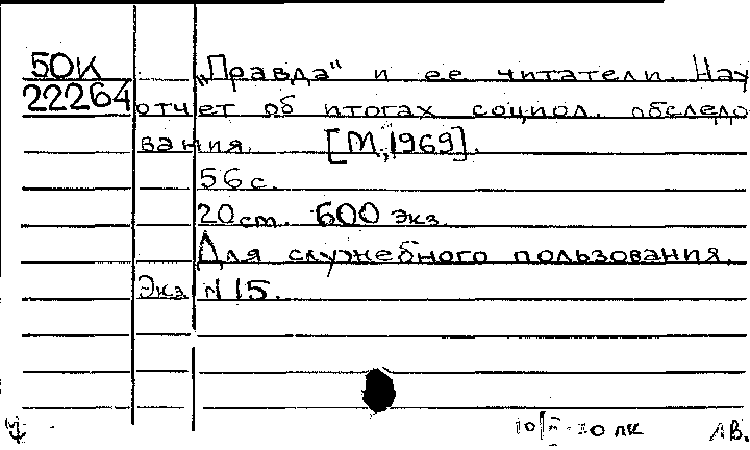 50К „Правда“ и ее читатели. Нау
22264 отчет об итогах социол. обследо
вания. [М., 1969].
56 с.
20 см. 600 экз.
Для служебного пользования.
Экз N 15.
ЛВ.